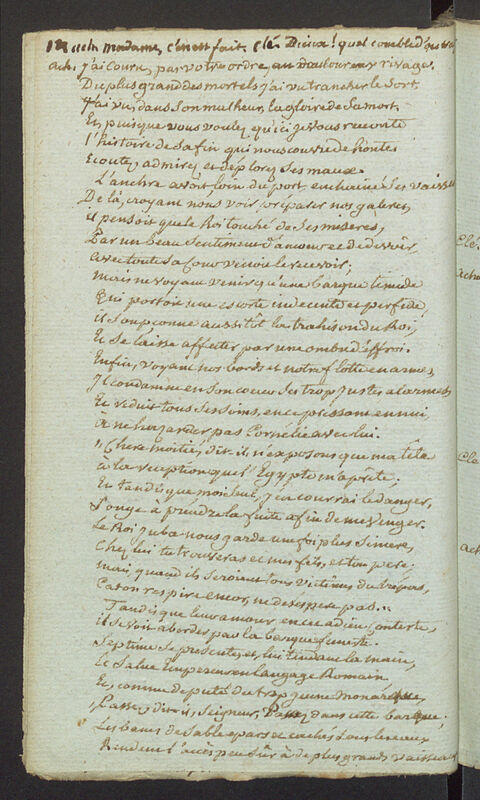 12 ach. madame, c'en est fait. Clé. Dieux! quel comble d'
Ach. j'ai couru, par votre ordre, au douloureux rivage.
Du plus grand des mortels j'ai vu trancher le Sort.
J'ai vu, dans Son malheur, la gloire de Sa mort.
Et, puisque vous voulez qu'ici je vous raconte
l'histoire de Sa fin qui nous couvre de honte
Ecoutez, admirez et déplorez Ses maux.
L'anchre avoit loin du port, enchainé Ses vaisse
De là, croyant nous voir préparer nos galeres,
il pensoit que le Roi touché de Ses miseres,
Par un beau Sentiment d'amour et de devoir,
avec toute Sa Cour venoit le recevoir;
mais ne voyant venir qu'une barque timide
Qui portoit une escorte indecente et perfide,
il Soupçonne aussitôt la trahison du Roi,
Et Se laisse affecter par une ombre d'effroi.
Enfin, voyant nos bords et notre flotte en armes,
Il condamne en Son coeur Ses trop justes alarmes
Et réduit tous Ses Soins, en ce pressant ennui
à ne hazarder pas Cornélie avec lui.
"Chere moitié, dit-il, n'exposons que ma tête
à la réception que l'Egypte m'aprête;
Et tandis que moi Seul, j'en courrai le danger,
Songe à prendre la fuite afin de me venger.
Le Roi Juba nous garde une foi plus Sincere,
Chez lui tu trouveras et mes fils, et ton pere;
mais quand ils Seroient tous victimes du trépas,
Caton respire encor, ne desespere pas...
Tandis que leur amour en cet adieu conteste,
il Se voit aborder par la barque funeste.
Septime Se présente, et, lui tendant la main,
Le Salue Empereur en langage Romain
Et, comme député du trop jeune monarque,
Passez, dit-il, Seigneur, Passez dans cette barque;
Les bancs de Sable épars et cachés Sous les eaux
Rendent l'accès peu Sûr à de plus grands vaisseau
Clé.
ach.
Clé
ach